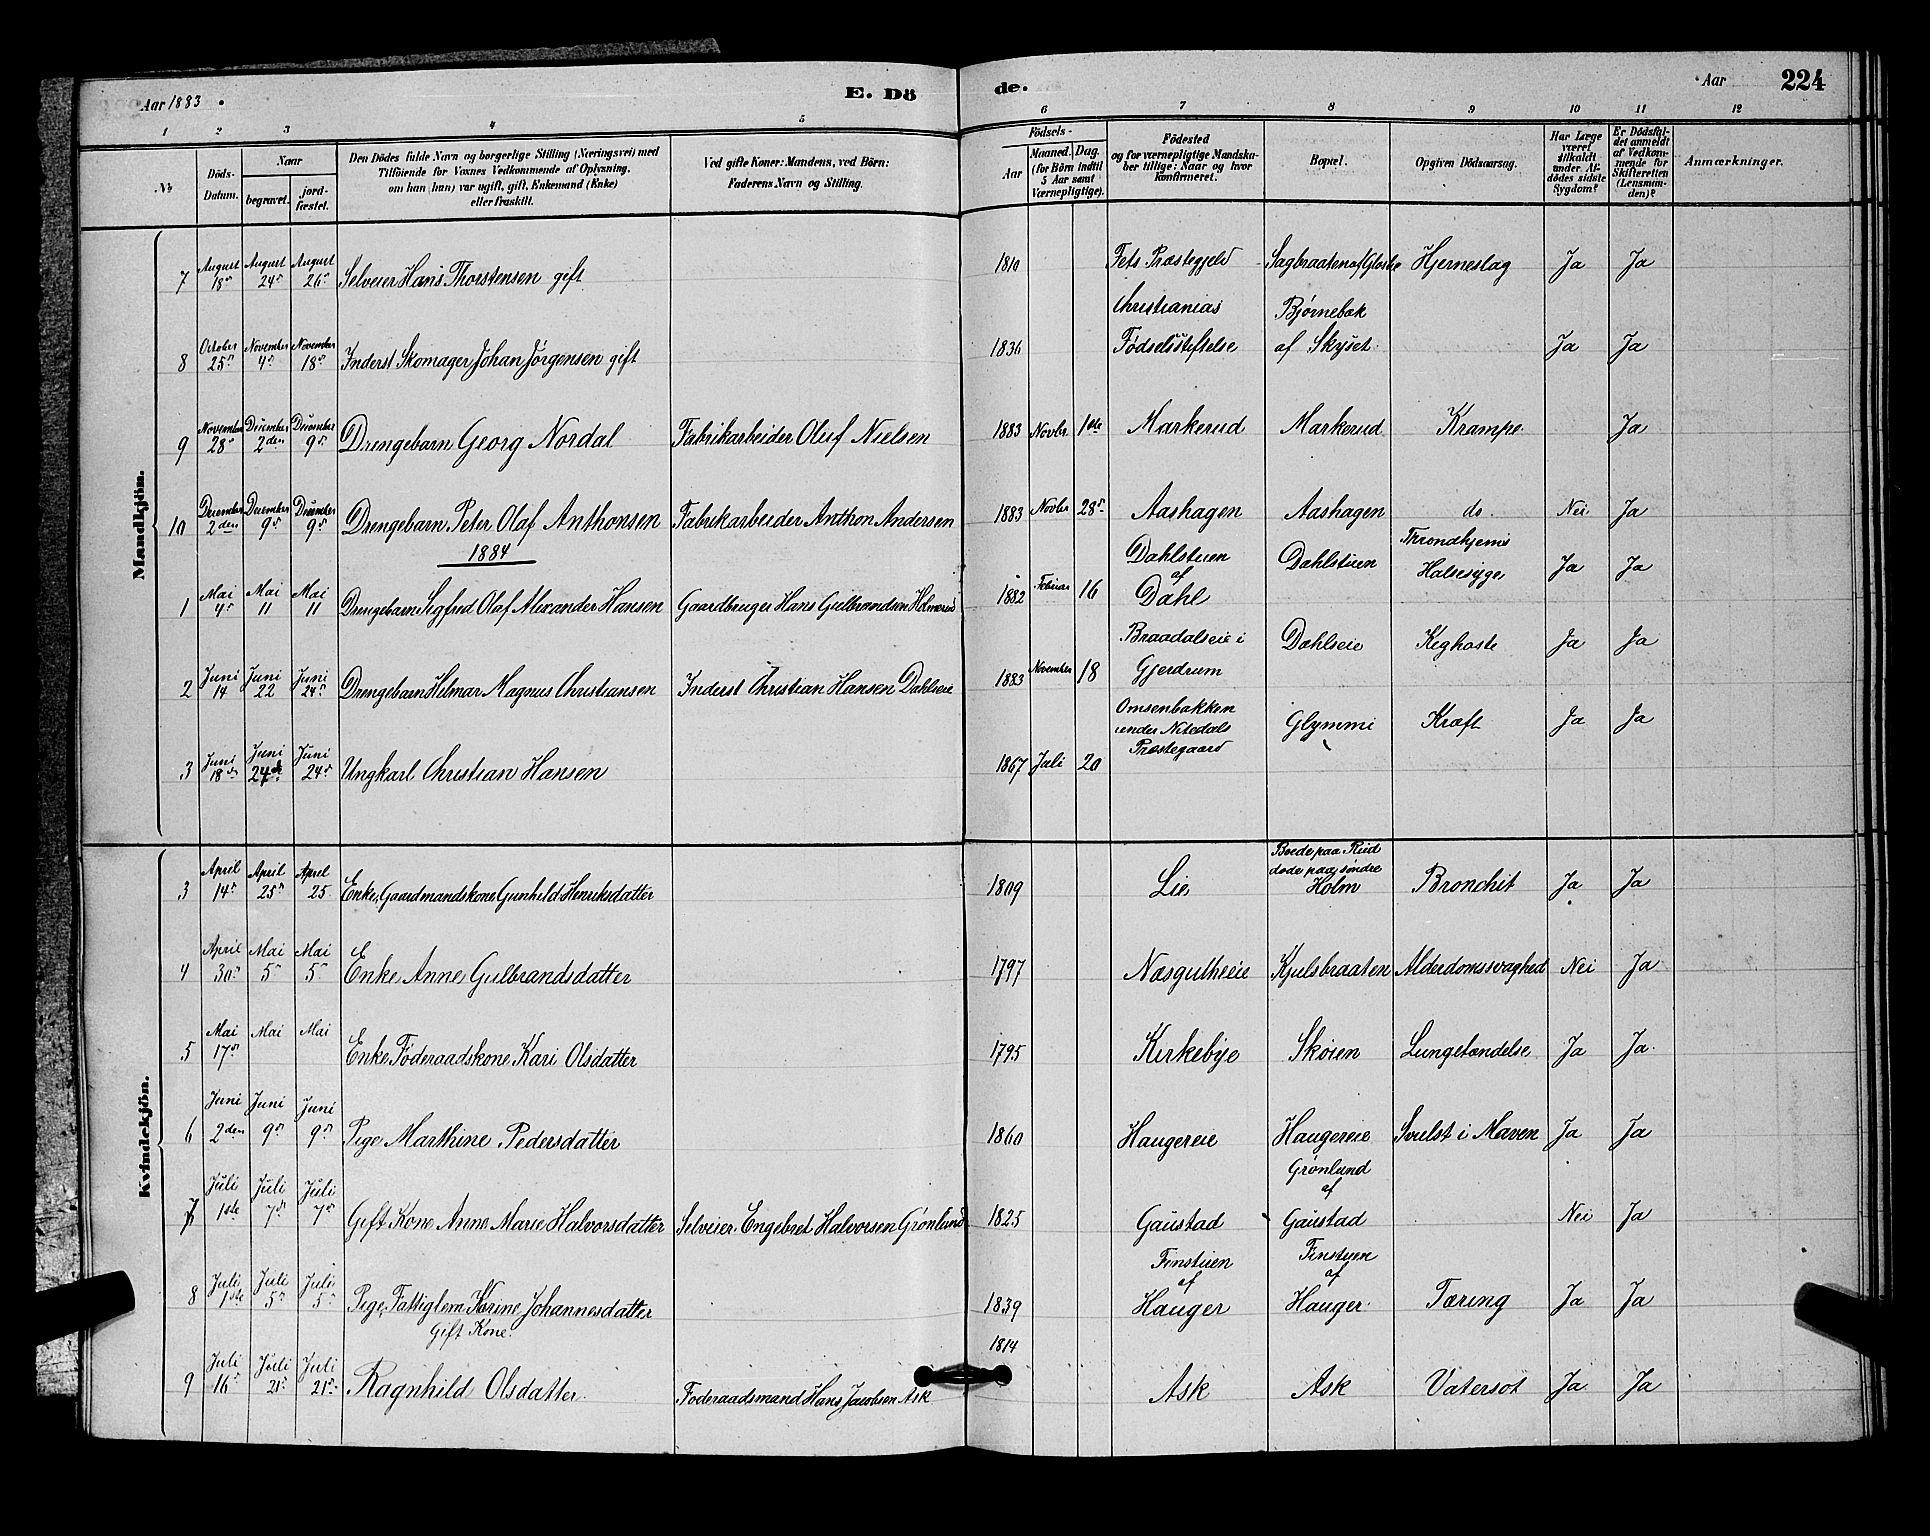 Aar 1883.
E. Dö
de.
Aar
224
1 2 3 4 5 6 7 8 9 10 11 12
No
Döds-Datum.
Naar
begravet.
jord-fæstet.
Den Dödes fulde Navn og borgerlige Stilling (Næringsvei) med
Tilföiende for Voxnes Vedkommende af Oplysning,
om han (hun) var ugift, gift, Enkemand (Enke)
eller fraskilt.
Ved gifte Koner: Mandens, ved Börn:
Faderens Navn og Stilling.
Födsels-
Aar
Maaned. Dag.
(for Börn indtil
5 Aar samt
Værnepligtige).
Födested
og for værnepligtige Mandska-
ber tillige: Naar og hvor
konfirmeret.
Bopæl.
Opgiven Dödsaarsag.
Har Læge
været
tilkaldt
under Af-
dödes sidste
Sygdom?
Er Dödsfal-
det anmeldt
af Vedkom-
mende for
Skifteretten
(Lensman-
den)?
Anmærkninger.
Mandkjön.
7 August 18de August 24de August 26de Selveier Hans Thorstensen gift 1810 Fets Præstegjeld Sagbraaten af Hjerneslag Ja Ja
8 October 25de November 4de November 18de Inderst Skomager Johan Jørgensen gift 1836 Christianias Fødselsstiftelse Bjørnebæk af Skyset Ja Ja
9 November 28de December 2den December 9de Drengebarn Georg Nordal Fabrikarbeider Oluf Nielsen 1883 Novbr 1ste Markerud Markerud Krampe Ja
10 December 2den December 9de December 9de Drengebarn Peter Olaf Anthonsen Fabrikarbeider Anthon Andersen 1883 Novbr 28de Aashagen Aashagen do. Nei Ja
1884
1 Mai 4de Mai 11 Mai 11 Drengebarn Sigfred Olaf Alexander Hansen Gaardbruger Hans Gulbrandsen 1882 Februar 16 Dahlstuen af Dahl Dahlstuen Throndhjems Halsesyge Ja Ja
2 Juni 14 Juni 22 Juni 24de Drengebarn Helmar Magnus Christiansen Inderst Christian Hansen Dahlseie 1883 November 18 Braadalseie i Gjerdrum Dahlseie Kighoste Ja Ja
3 Juni 18de Juni 24de Juni 24de Ungkarl Christian Hansen 1867 Juli 20 Omsenbakken under Nitedals Præstegaard Glymmi Kræft Ja Ja
Kvindekjön.
3 April 14de April 25de April 25 Enke, Gaardmandskone Gunhild Henriksdatter 1809 Lie Boede paa Ruud døde paa søndre Holm Bronchit Ja Ja
4 April 30de Mai 5de Mai 5de Enke Anne Gulbrandsdatter 1797 Næsgutheeie Kjulsbraaten Alderdomssvaghed Nei Ja
5 Mai 17de Mai Mai Enke Føderaadskone Kari Olsdatter 1795 Kirkebye Skøien Lungetændelse Ja Ja
6 Juni 2den Juni 9de Juni 9de Pige Marthine Pedersdatter 1860 Haugereie Haugereie Svulst i Maven Ja Ja
7 Juli 1ste Juli 7de Juli 7de Gift Kone Anne Marie Halvorsdatter Selveier Engebret Halvorsen Grønlund 1825 Gaustad Grønlund af Gaustad Nei Ja
8 Juli 1ste Juli 5de Juli 5de Pige, Fattiglem Karine Johannesdatter 1839 Finstuen af Hauger Finstuen af Hauger Tæring Ja Ja
9 Juli 16de Juli 21de Juli 21de Gift Kone. Ragnhild Olsdatter Føderaadsmand Hans Jacobsen Ask 1814 Ask Ask Vatersot Ja Ja